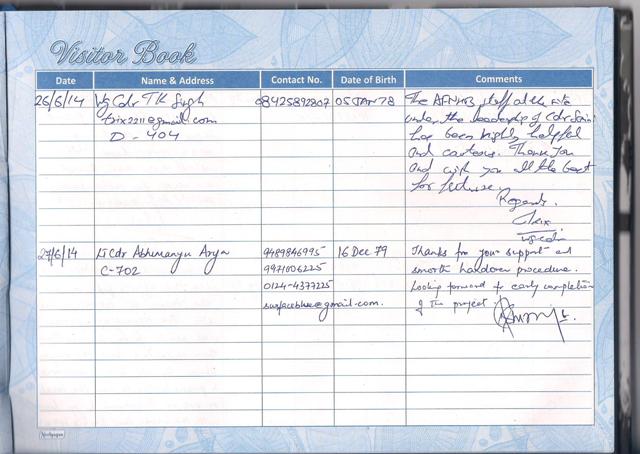 Visitor Book
Date Name & Address Contact No. Date of Birth Comments
26/6/14 Wg Cdr TK Singh 08425892807 05 JAN 78 The AFNHB staff at the site
trix2211@gmail.com under the leadership of Cdr Saini
D - 404 has been highly helpful
and courteous. Thank You
and wish you all the best
for future.
Regards.
Trix
Wg Cdr
27/6/14 Lt Cdr Abhimanyu Arya 9489846995 16 Dec 79 Thanks for your support and
C-702 9971006225 smooth handover procedure.
0124-4377225 Looking forward to early completion
surfaceblue@gmail.com. of the project.